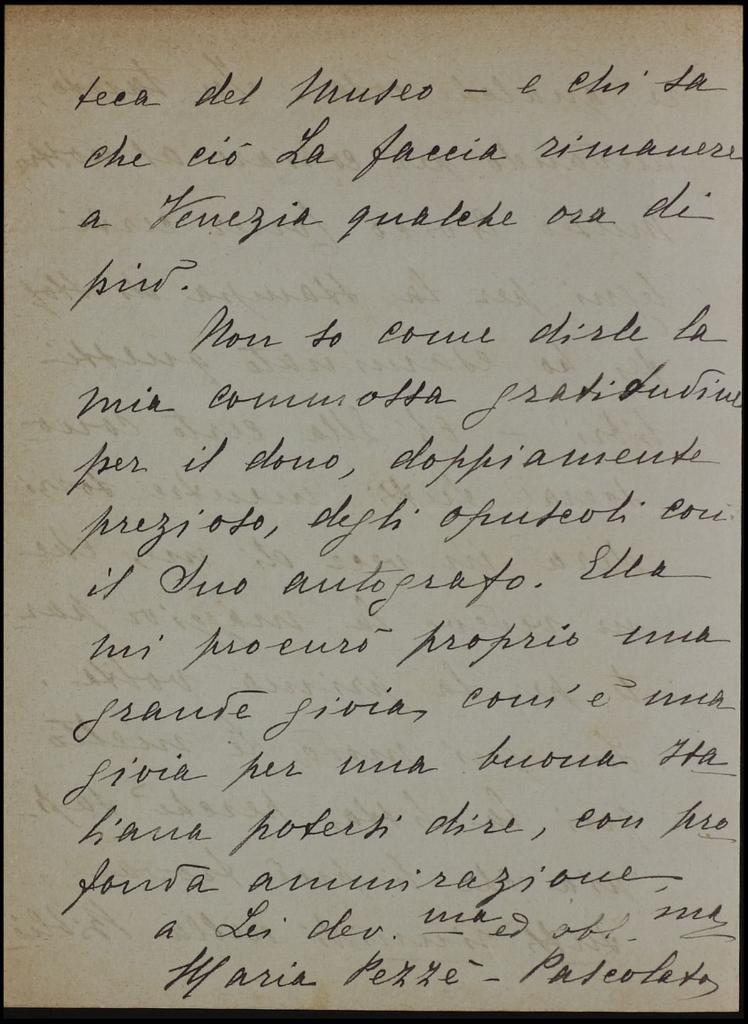 teca del Museo – e chi sa
che ciò La faccia rimanere
a Venezia qualche ora di
più.
Non so come dirle la
mia commossa gratitudine
per il dono, doppiamente
prezioso, degli opuscoli con
il Suo autografo. Ella
mi procurò proprio una
grande gioia, com'è una
gioia per una buona Ita
liana potersi dire, con pro
fonda ammirazione,
a Lei dev. ma ed obl. ma
Maria Pezzè-Pascolato